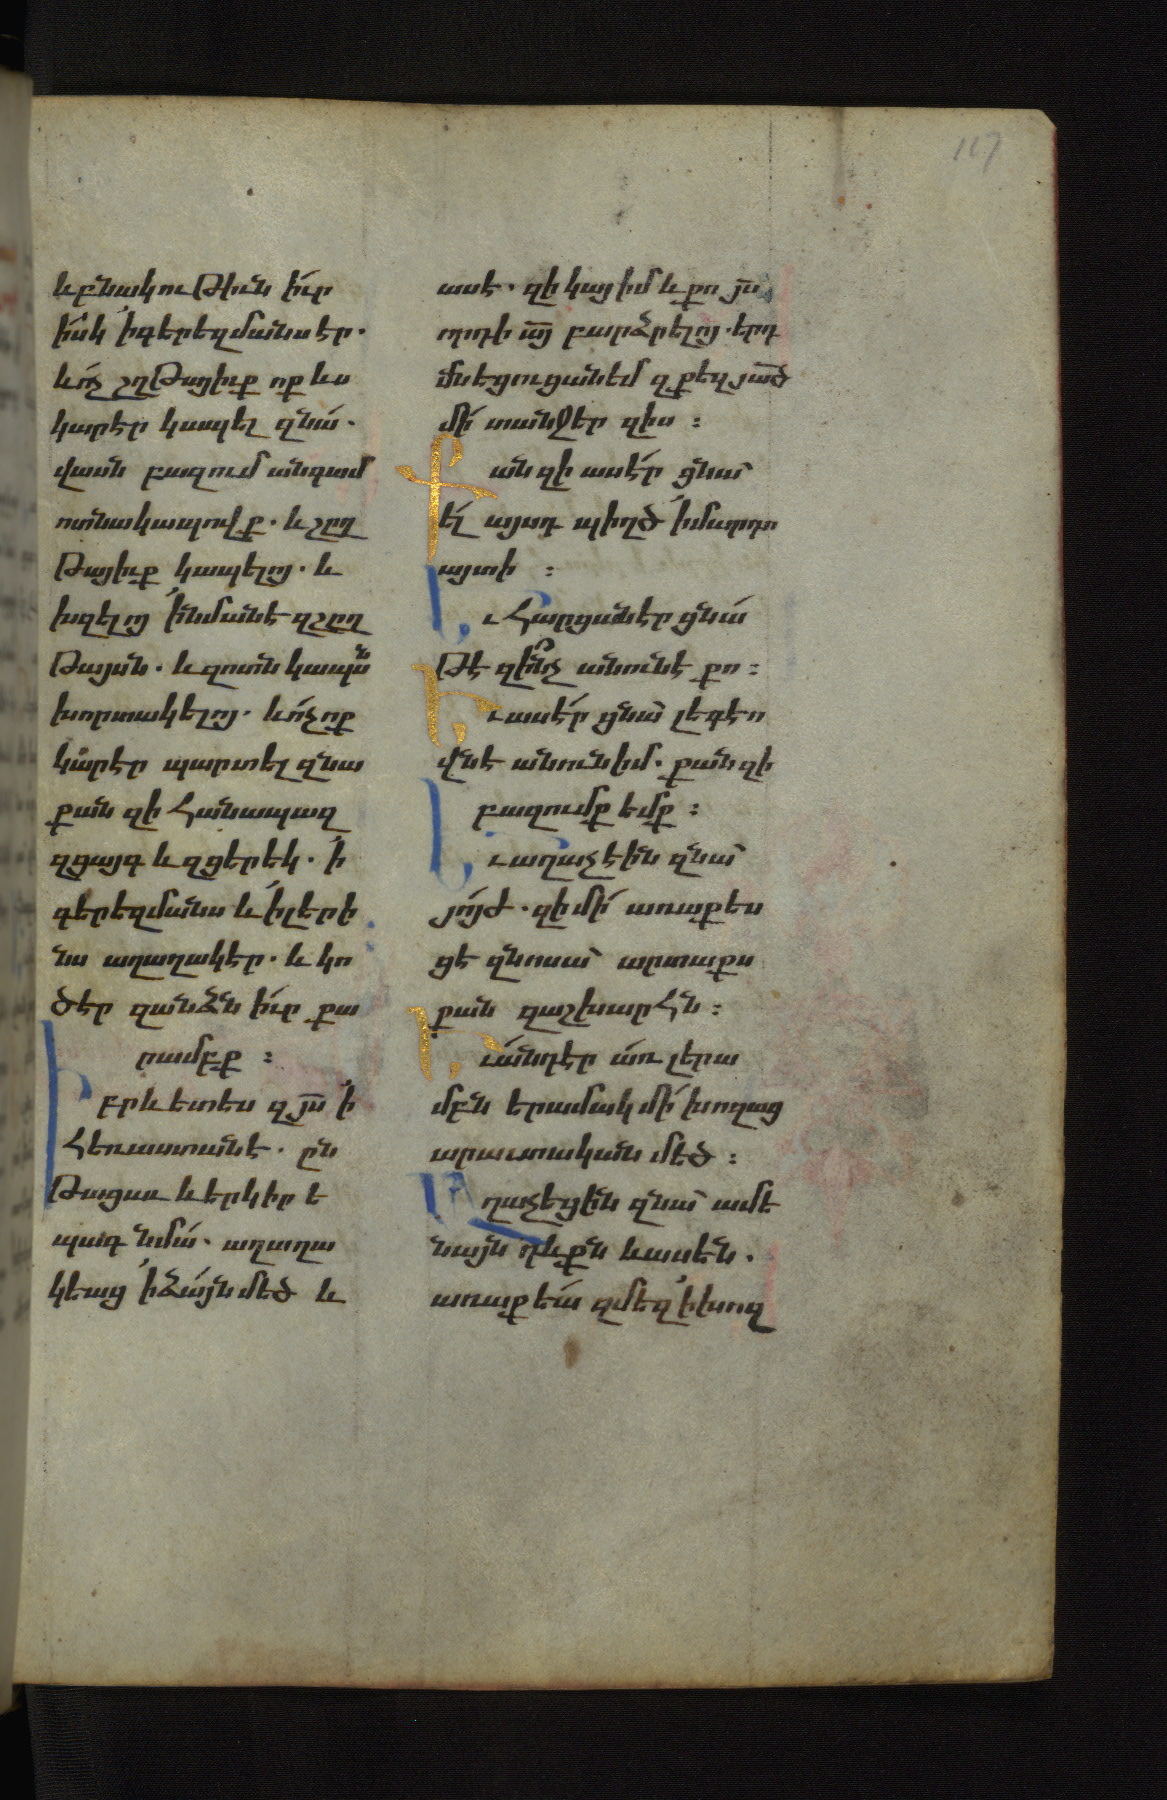 117
և բնակութիւն իւր
իսկ ՚ի գերեզմանս էր.
և ոչ շղթայիւք ոք ևս
կարէր կապել զնա.
վասն բազում անգամ
ոտնակապովք. և շըղ
թայիւք կապելոյ. և
խզելոյ ՚ի նմանէ զշըղ
թայսն. և զոտն կապսն
խորտակելոյ. և ոչ ոք
կարէր պարտել զնա
քան զի հանապազ
զցայգ և զցերեկ. ՚ի
գերեզմանս և ՚ի լերի
նս աղաղակէր. և կո
ծէր զանձն իւր քա
րամբք :
Իբրև ետես զյս ՚ի
հեռաստանէ. ըն
թացաւ և երկիր ե
պագ նմա. աղաղա
կեաց ՚ի ձայն մեծ և
ասէ. զի կայ իմ և քո յս
որդի այ բարձրելոյ. երդ
մնեցուցանեմ զքեզ յած
մի տանջեր զիս :
Քանզի ասէր ցնա
ել այսդ պիղծ ՚ի մարդո
այտի :
Եւ հարցանէր ցնա
թէ զինչ անուն է քո :
Եւ ասէր ցնա լեգէո
վն է անուն իմ. քանզի
բազումք եմք :
Եւ աղաչէին զնա
յոյժ. զի մի առաքես
ցէ զնոսա արտաքս
քան զաշխարհն :
Եւ անդէր առ լերա
մբն երամակ մի խոզաց
արաւտական մեծ :
Աղաչեցին զնա ամե
նայն դևքն և ասեն.
առաքեա զմեզ ՚ի խոզ